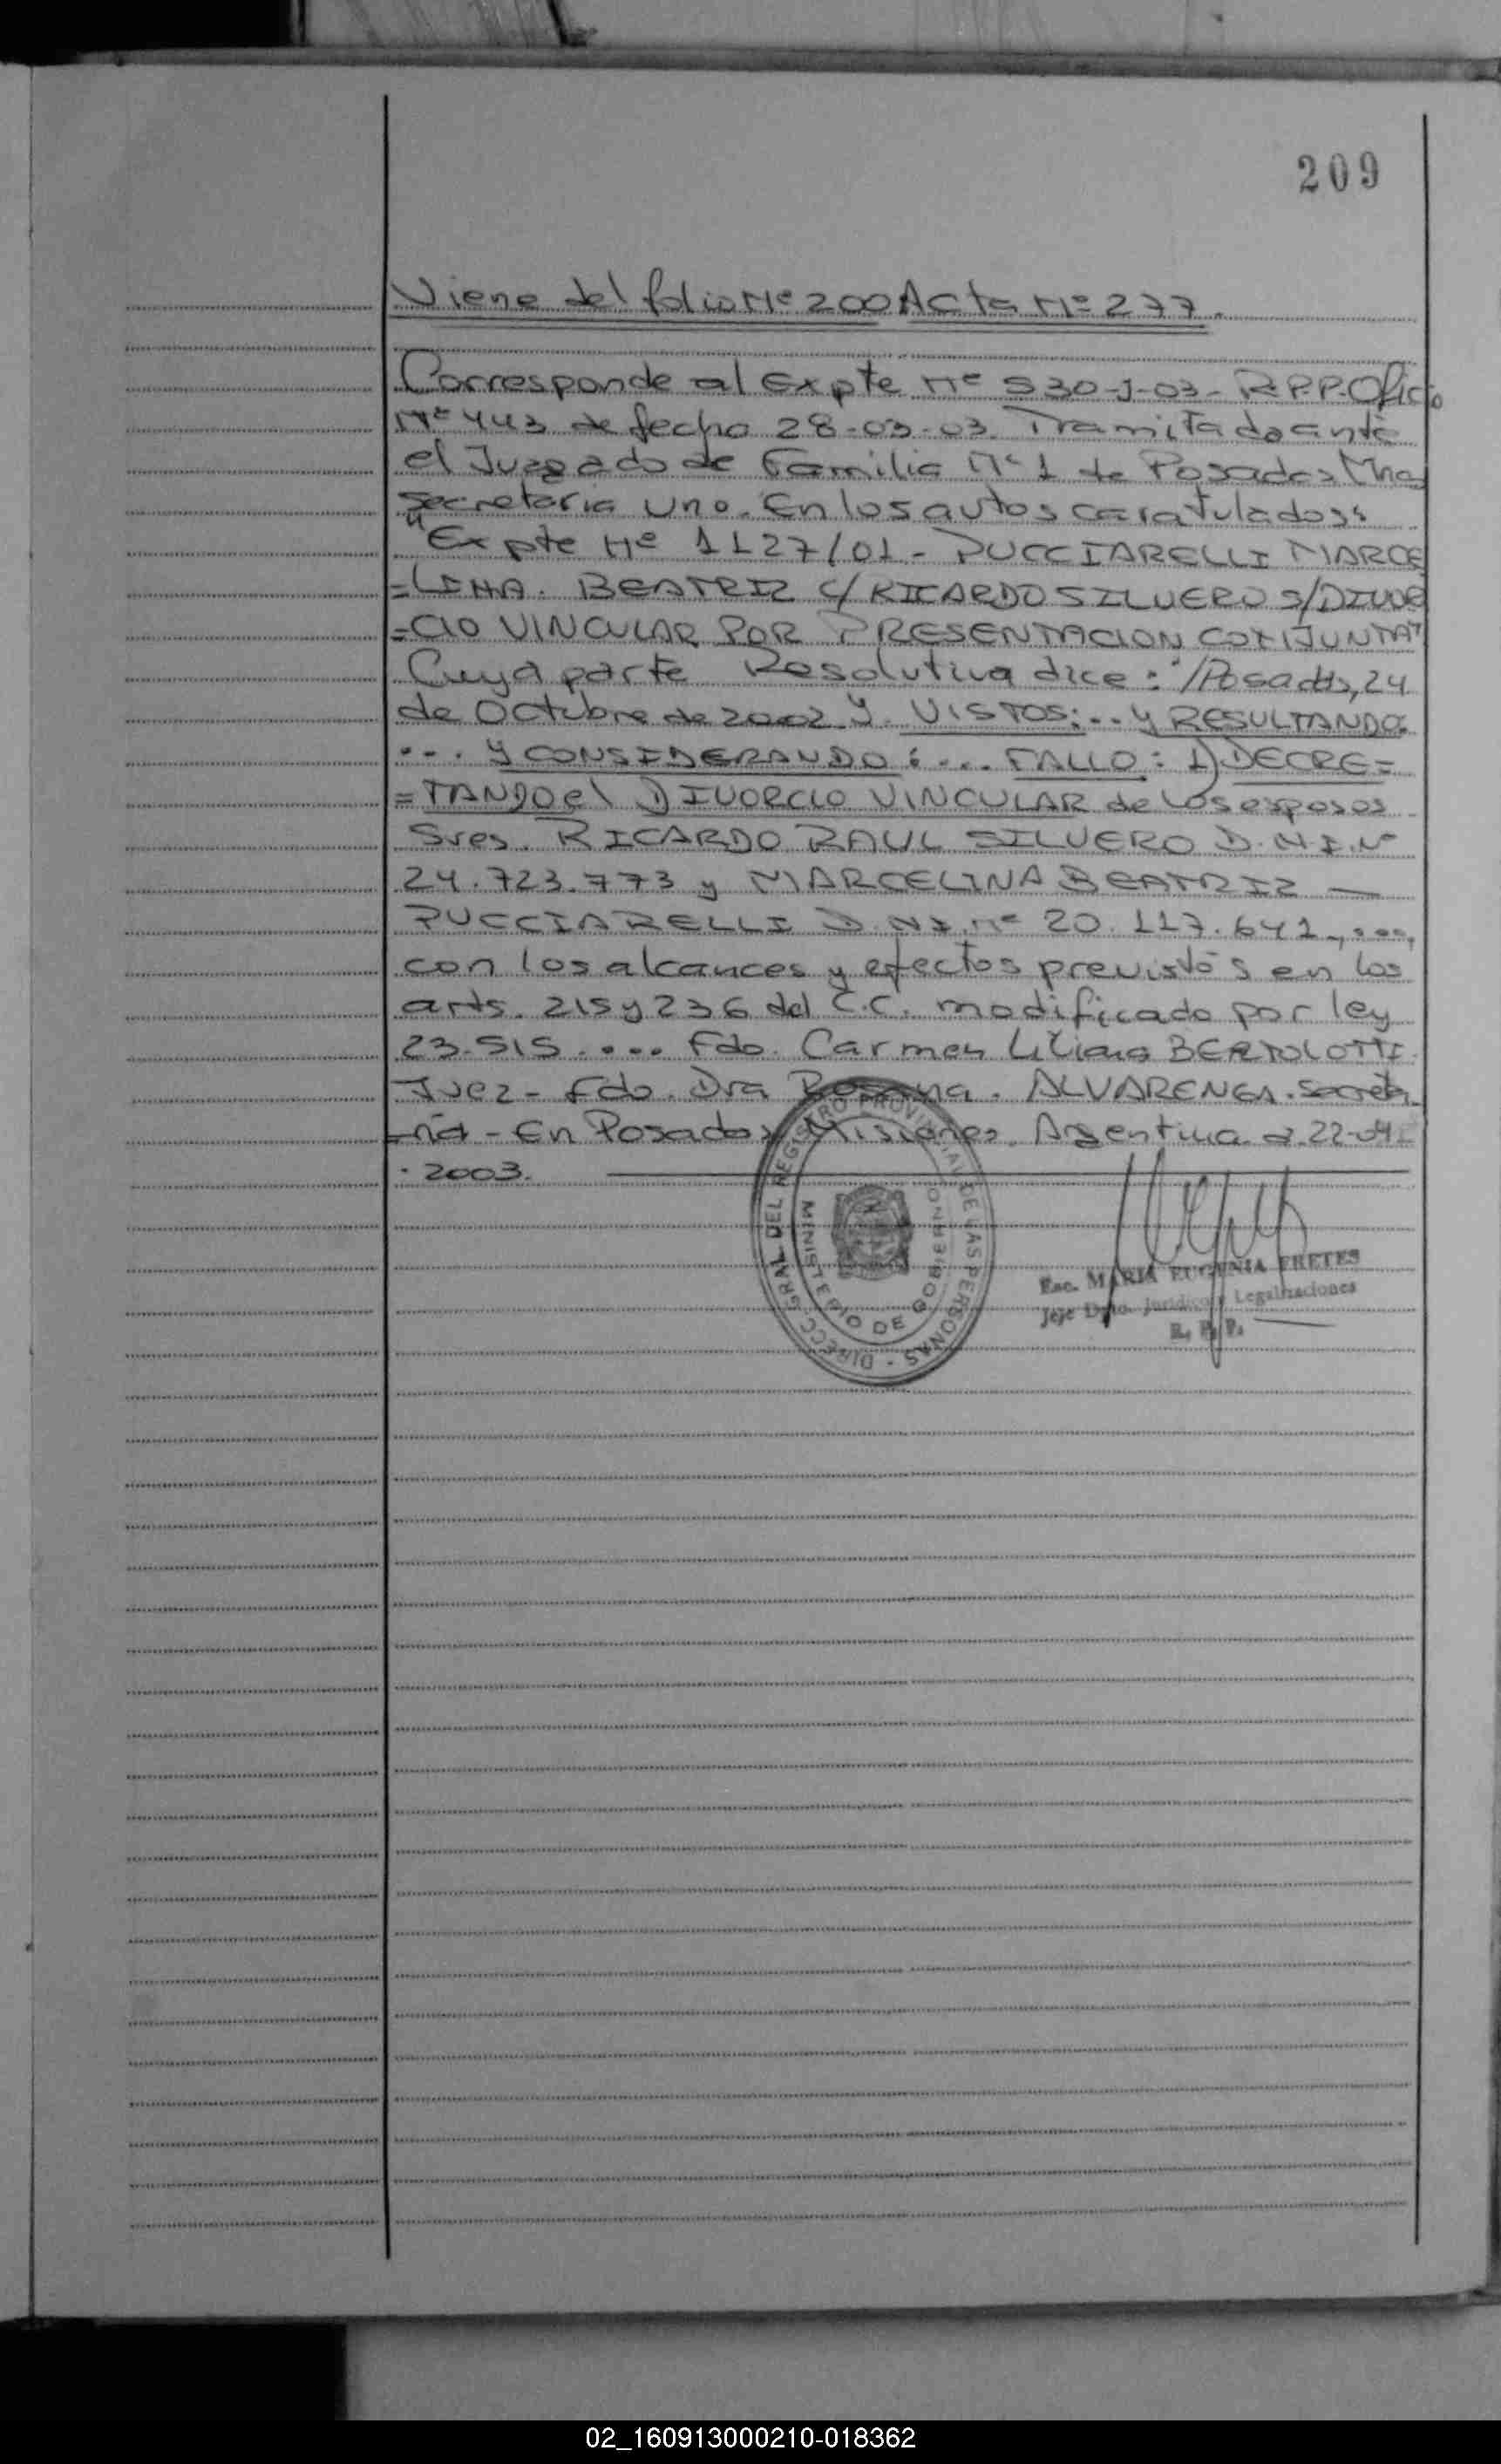 209
Viene del folio Nº 200 Acta Nº 277.
Corresponde al Expte Nº 530-J-03- R.P.P. Oficio
Nº 443 de fecha 28-03-03. Tramitado ante
el Juzgado de Familia Nº 1 de Posadas Mnes
Secretaria Uno. En los autos caratulados:
"Expte Nº 1127/01- PUCCIARELLI MARCE
=LINA. BEATRIZ C/ RICARDO SILVERO S/DIVOR
=CIO VINCULAR POR PRESENTACION CONJUNTA"
Cuya parte Resolutiva dice: "/Posadas, 24
de Octubre de 2002 Y. VISTOS:... Y RESULTANDO:
... Y CONSIDERANDO: ... FALLO: 1) DECRE=
=TANDO el DIVORCIO VINCULAR de los esposos
Sres. RICARDO RAUL SILVERO D.N.I. Nº
24.723.773 y MARCELINA BEATRIZ —
PUCCIARELLI D.N.I. Nº 20.117.641, ...,
con los alcances y efectos previstos en los
arts. 215 y 236 del C.C. modificado por ley
23.515. ... Fdo. Carmen Liliana BERTOLOTTI.
Juez- Fdo. Dra Rosana. ALVARENGA. Secreta-
ria - En Posadas, Misiones, Argentina a 22-04
·2003.
DIRECC. GRAL DEL REGISTRO PROVINCIAL DE LAS PERSONAS -
MINISTERIO DE GOBIERNO
Esc. MARIA EUGENIA FRETES
Jefe Dpto. Jurídico y Legalizaciones
R. P. P.
02_160913000210-018362